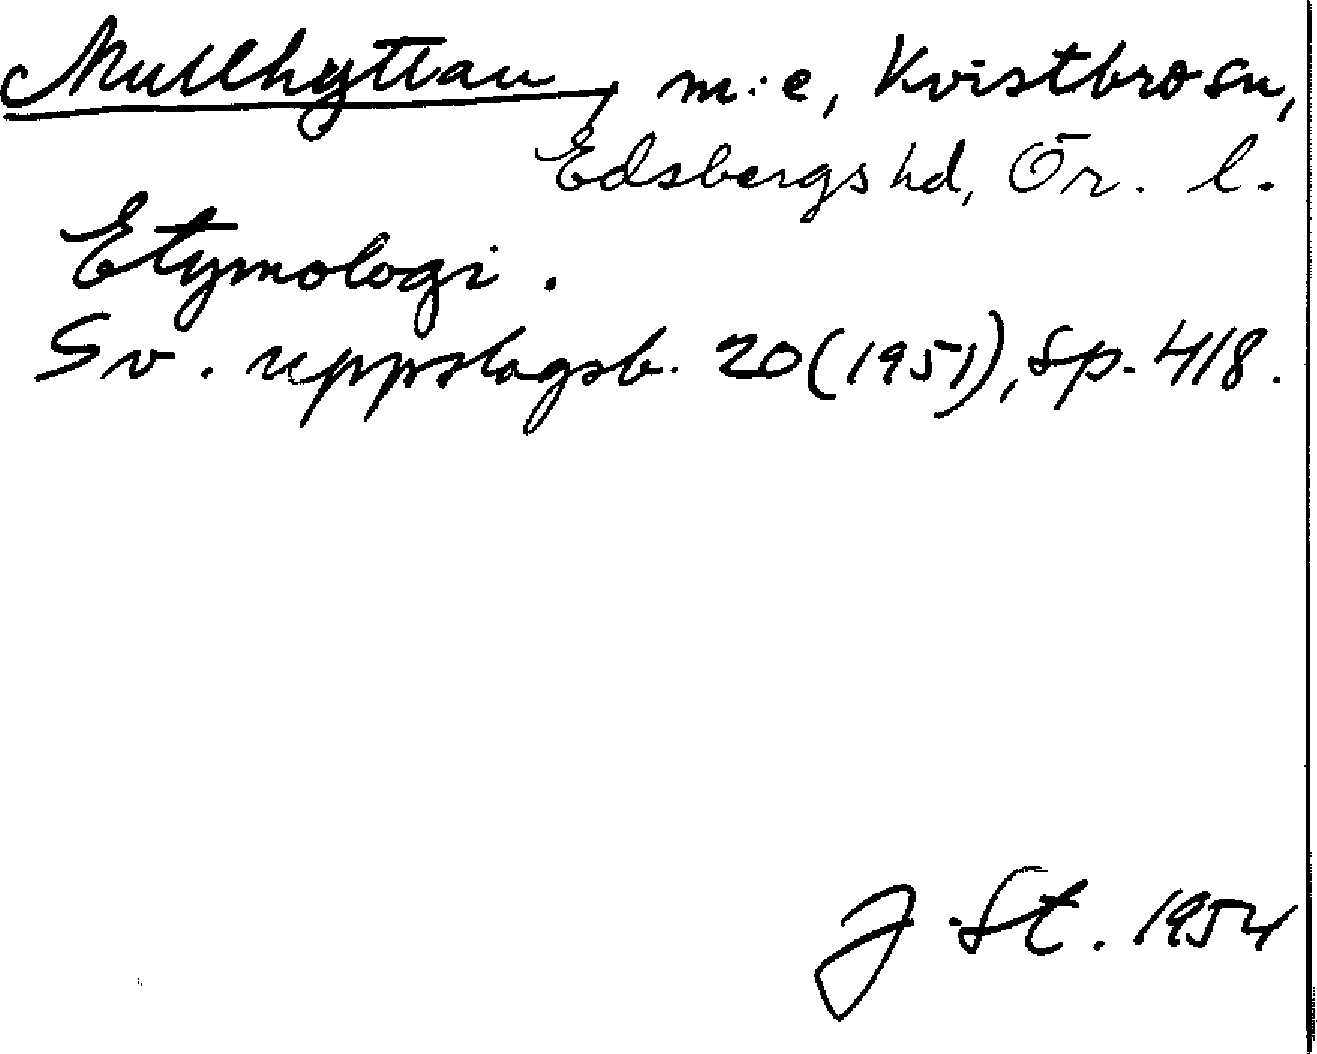 Mullhyttan, m:e, Kvistbro sn,
Edsbergs hd, Ör. l.
Etymologi.
Sv. uppslagsb. 20 (1951), sp. 418.
J. St. 1954